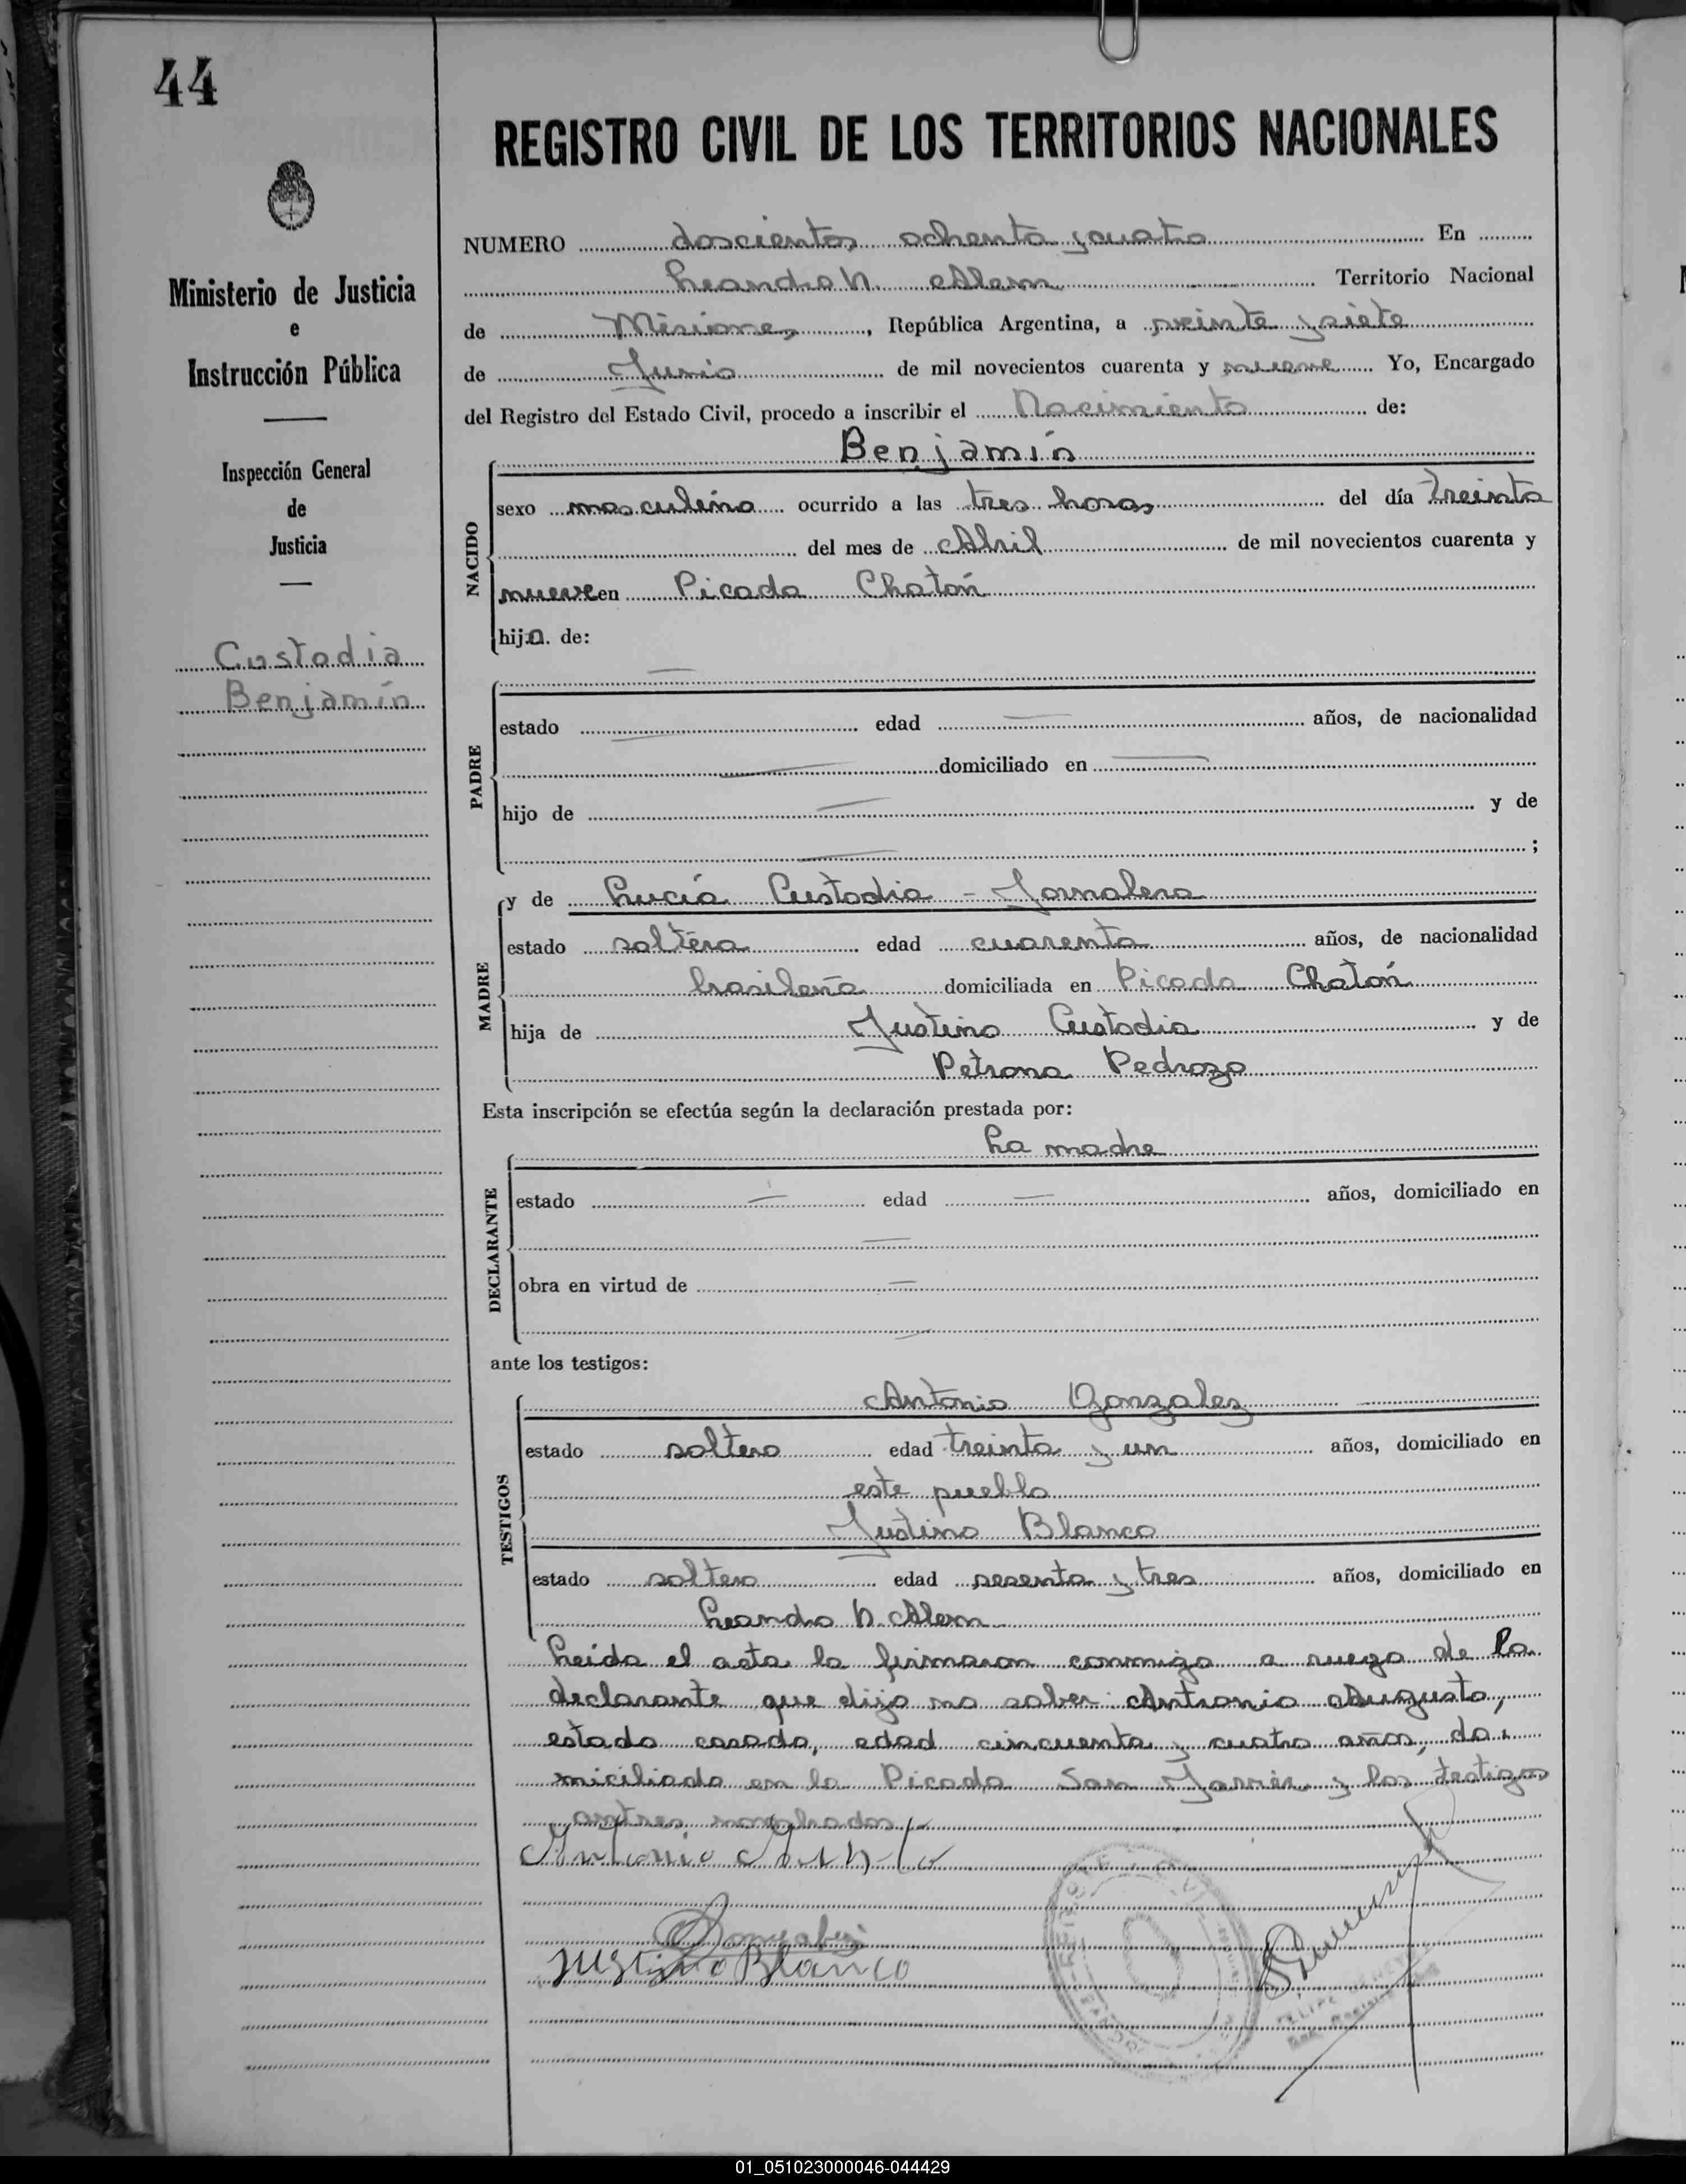 44
Ministerio de Justicia
e
Instrucción Pública
Inspección General
de
Justicia
Custodia
Benjamín
REGISTRO CIVIL DE LOS TERRITORIOS NACIONALES
NUMERO doscientos ochenta y cuatro En
Leandro N. Alem Territorio Nacional
de Misiones, República Argentina, a veinte y siete
de Junio de mil novecientos cuarenta y nueve Yo, Encargado
del Registro del Estado Civil, procedo a inscribir el Nacimiento de:
Benjamín
NACIDO
sexo masculino ocurrido a las tres horas del día treinta
del mes de Abril de mil novecientos cuarenta y
nueve en Picada Chatón
hijo. de:
PADRE
estado edad años, de nacionalidad
domiciliado en
hijo de y de
;
MADRE
y de Lucía Custodia - Jornalera
estado soltera edad cuarenta años, de nacionalidad
brasileña domiciliada en Picada Chatón
hija de Justino Custodia y de
Petrona Pedrozo
Esta inscripción se efectúa según la declaración prestada por:
La madre
DECLARANTE
estado edad años, domiciliado en
obra en virtud de
ante los testigos:
TESTIGOS
Antonio Gonzalez
estado soltero edad treinta y un años, domiciliado en
este pueblo
Justino Blanco
estado soltero edad sesenta y tres años, domiciliado en
Leandro N. Alem
Leída el acta la firmaron conmigo a ruego de la
declarante que dijo no saber Antronio Augusto,
estado casado, edad cincuenta y cuatro años, do-
miciliado en la Picada San Javier y los testigos
antres nombrados
Antonio
Gonzalez
Justino Blanco
01_051023000046-044429